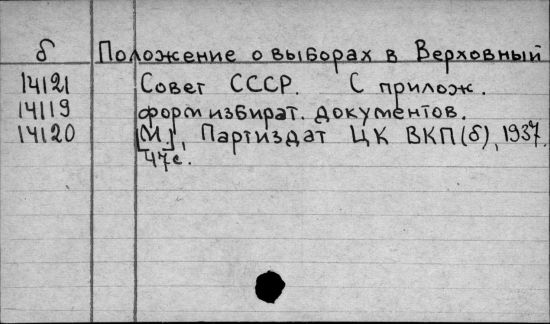 б Положение о выборах в Верховный
14121 Совет СССР. С прилож.
14119 форм избират. документов.
14120 [М.], Партиздат ЦК ВКП(б), 1937.
47с.